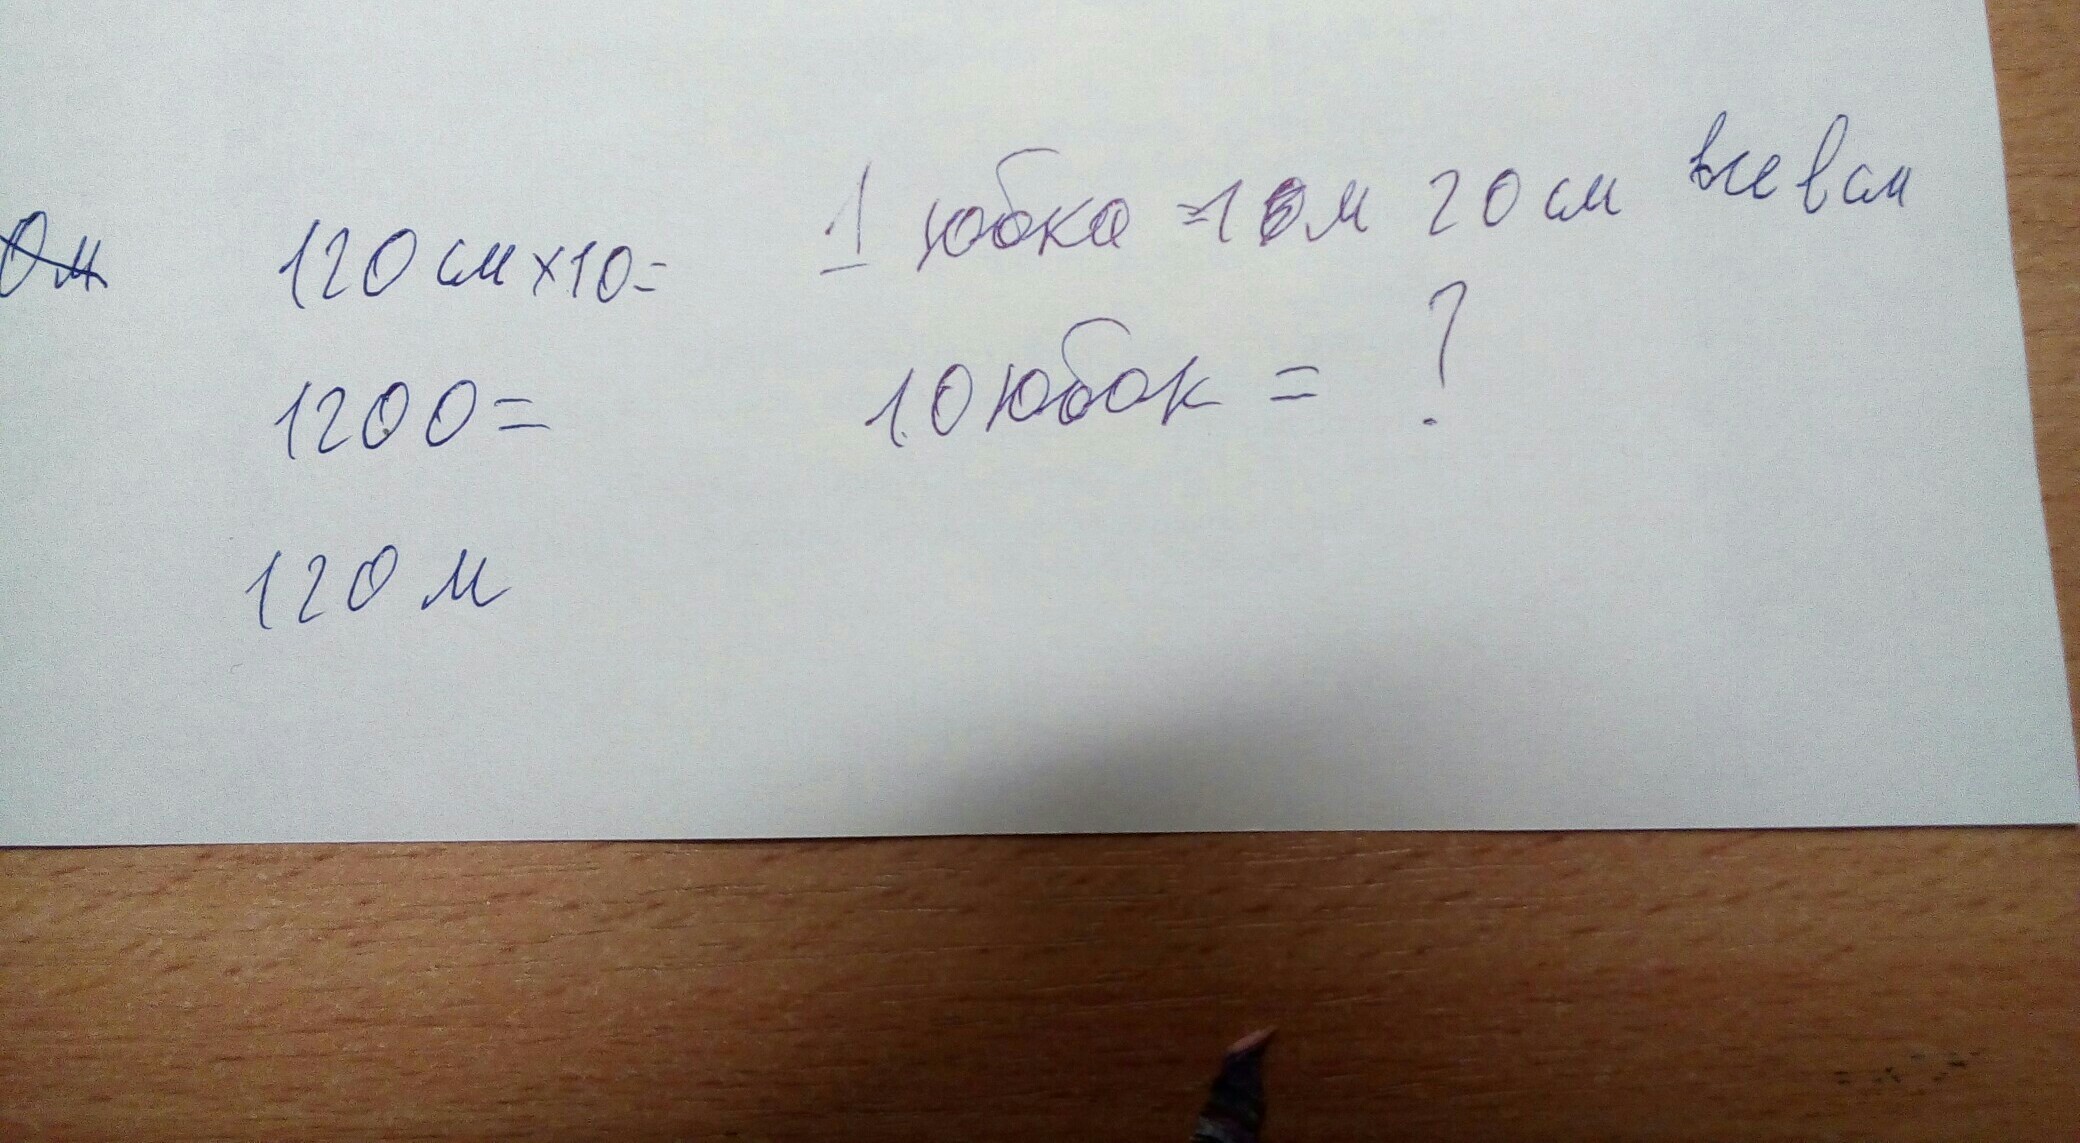 0м
120 см х10=
1200=
120 м
1 юбка =1 м 20 см все в см
10 юбок = ?